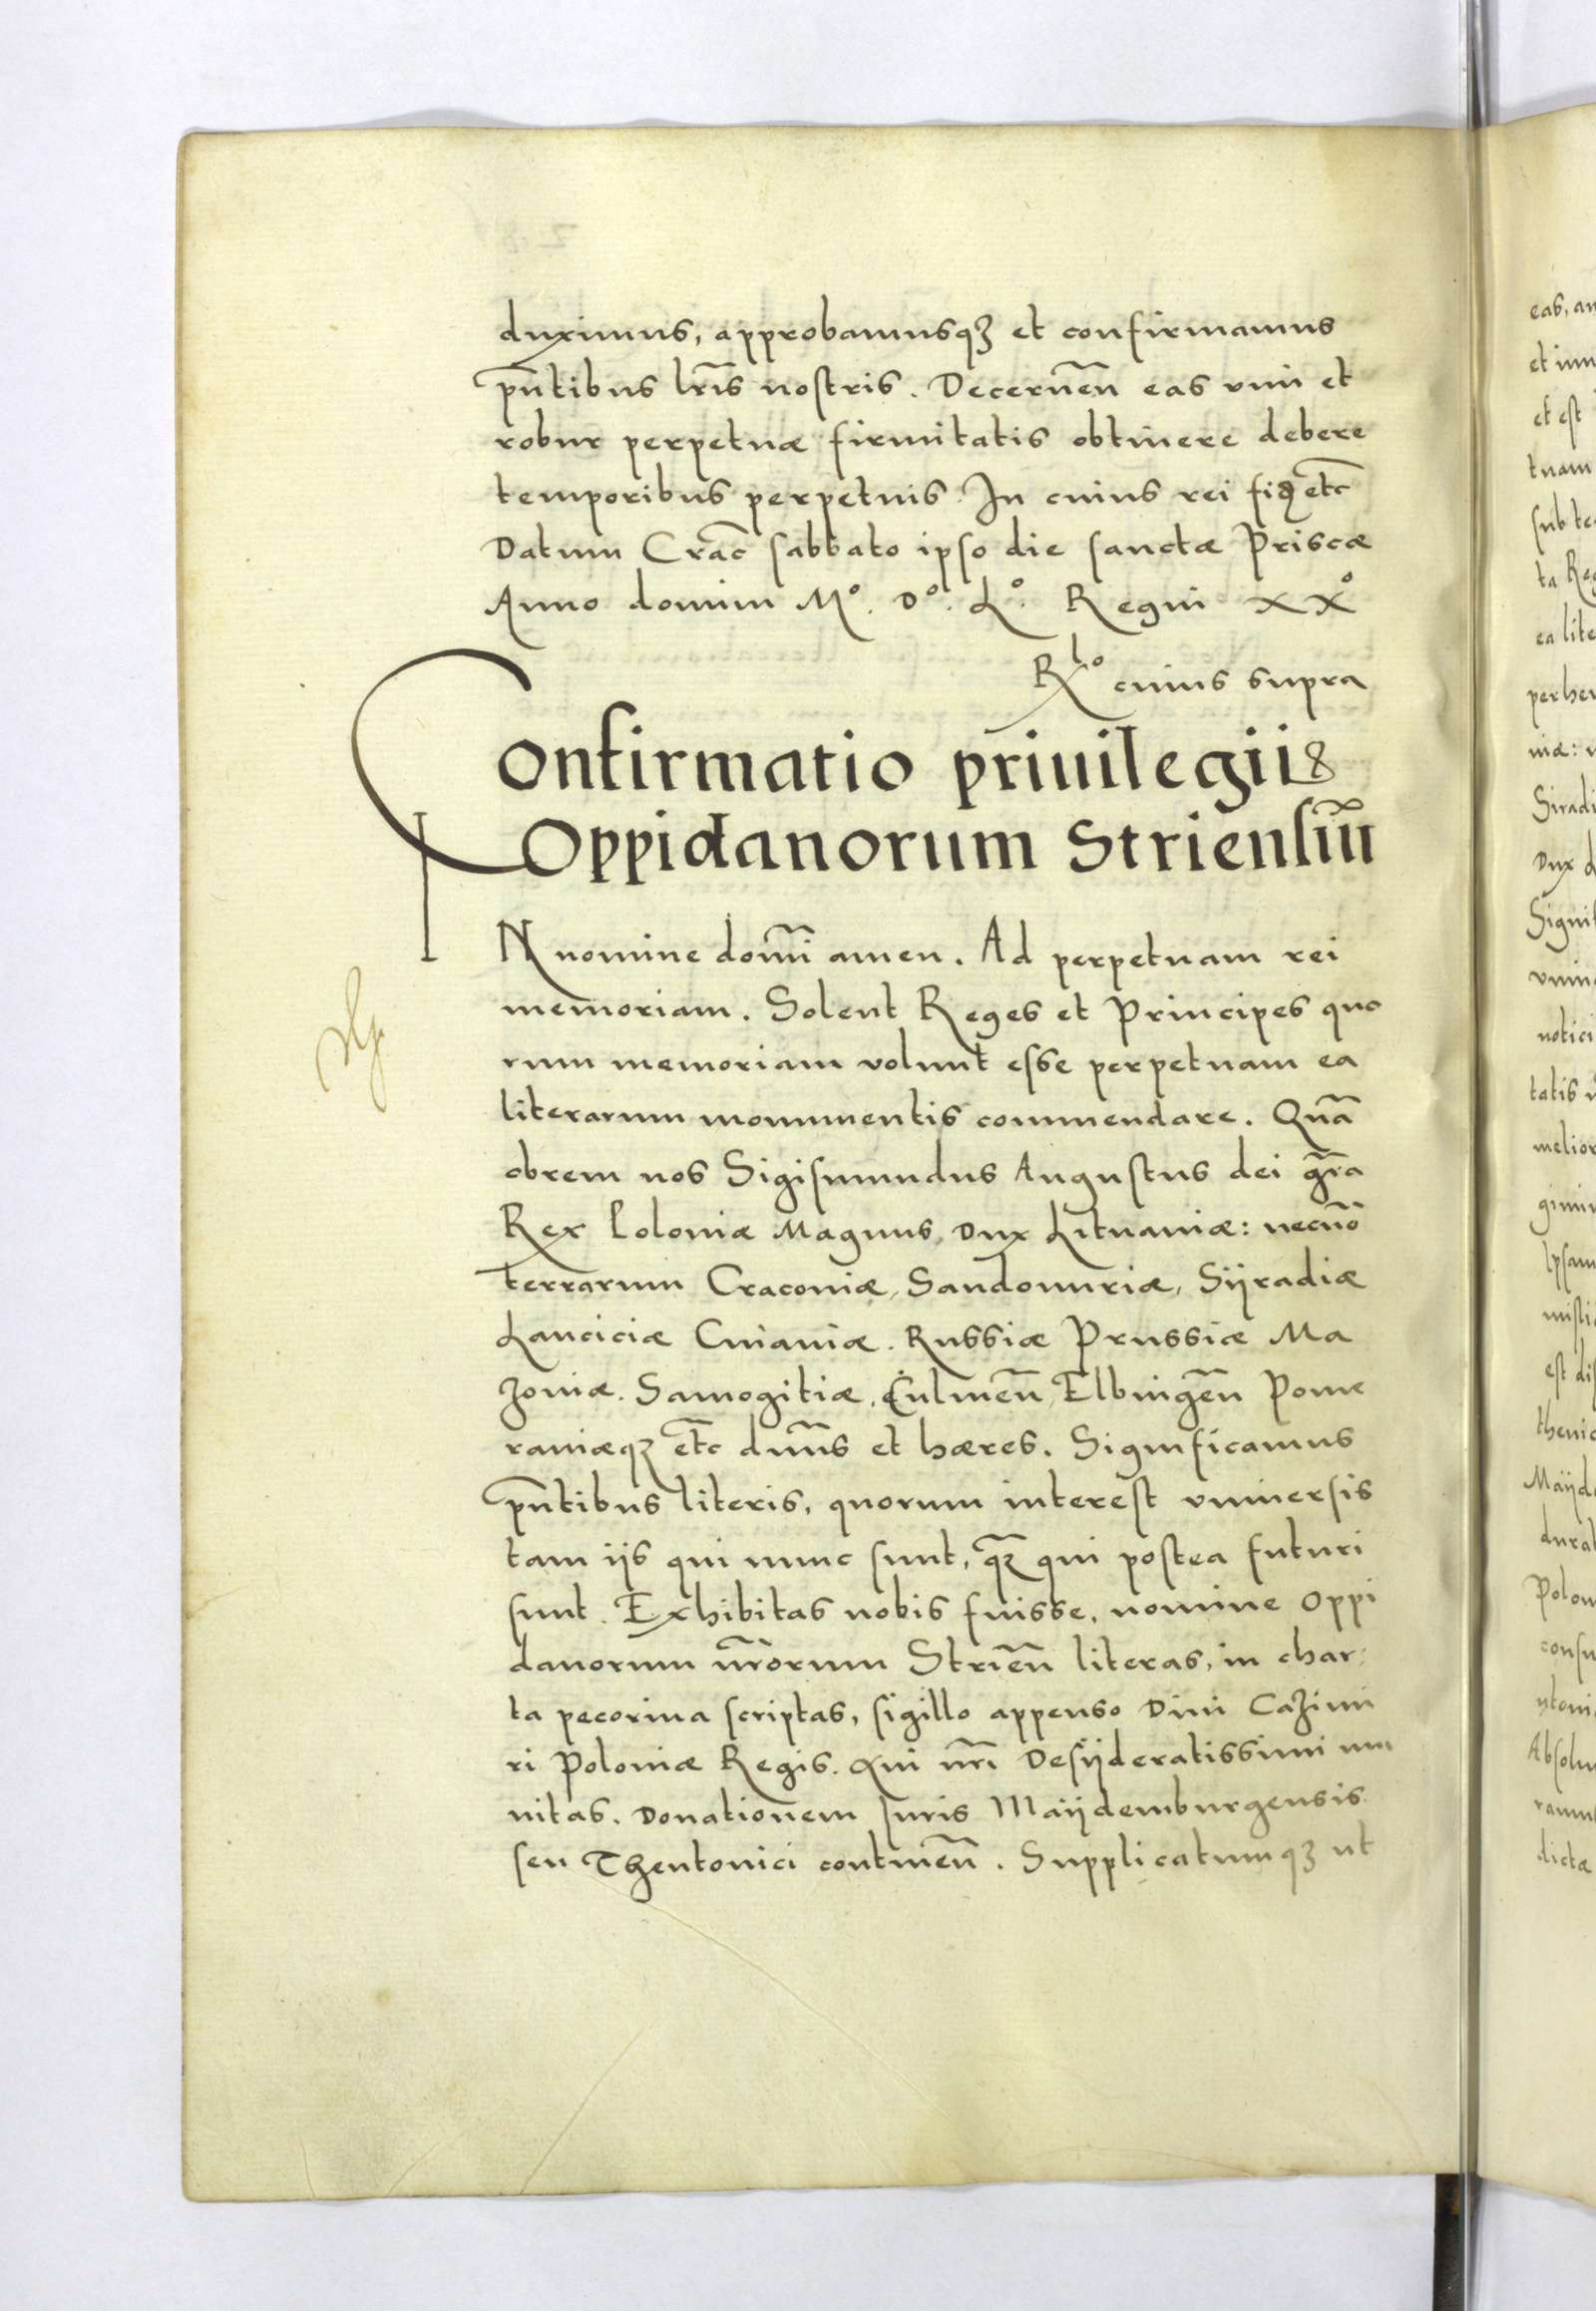 duximus, approbamusqꝫ et confirmamus
pn̄tibus lr̄is nostris. Decernen̄ eas vim et
robur perpetuæ firmitatis obtinere debere
temporibus perpetuis. In cuius rei fiꝺ etc̄
Datum Crac̄ sabbato ipso die sanctæ Priscæ
Anno domini Mº. Dº. Lº. Regni XXº
Rlº cuius supra
Confirmatio priuilegii
Oppidanorum Striensiū
IN nomine domī amen. Ad perpetuam rei
memoriam. Solent Reges et Principes quo
rum memoriam volunt esse perpetuam ea
literarum monumentis commendare. Quā
obrem nos Sigismundus Augustus dei gr̄a
Rex Poloniæ Magnus Dux Lituaniæ: necnō
terrarum Cracouiæ, Sandomiriæ, Sijradiæ
Lanciciæ Cuiauiæ. Russiæ Prussiæ Ma
zouiæ. Samogitiæ, Culmen̄, Elbingen̄ Pome
raniæqꝫ etc̄ dn̄us et hæres. Significamus
pn̄tibus literis, quorum interest vniuersis
tam ijs qui nunc sunt, qꝫ̄ qui postea futuri
sunt. Exhibitas nobis fuisse, nomine Oppi
danorum nr̄orum Strien̄ literas, in char:
ta pecorina scriptas, sigillo appenso Diui Cazimi
ri Poloniæ Regis. Aui nr̄i Desijderatissimi mu
nitas. Donationem Iuris Maijdemburgensis
seu Theutonici continen̄. Supplicatumqꝫ ut
eas, an
et inn
et est
tuam
sub te
ta Reg
ea lite
per hen
niæ:
Siradi
Dux L
Signif
notici
tatis
melior
Ipsam
est dis
theni
Maijd
durat
Polon
consu
Absolu
ramu
dictæ